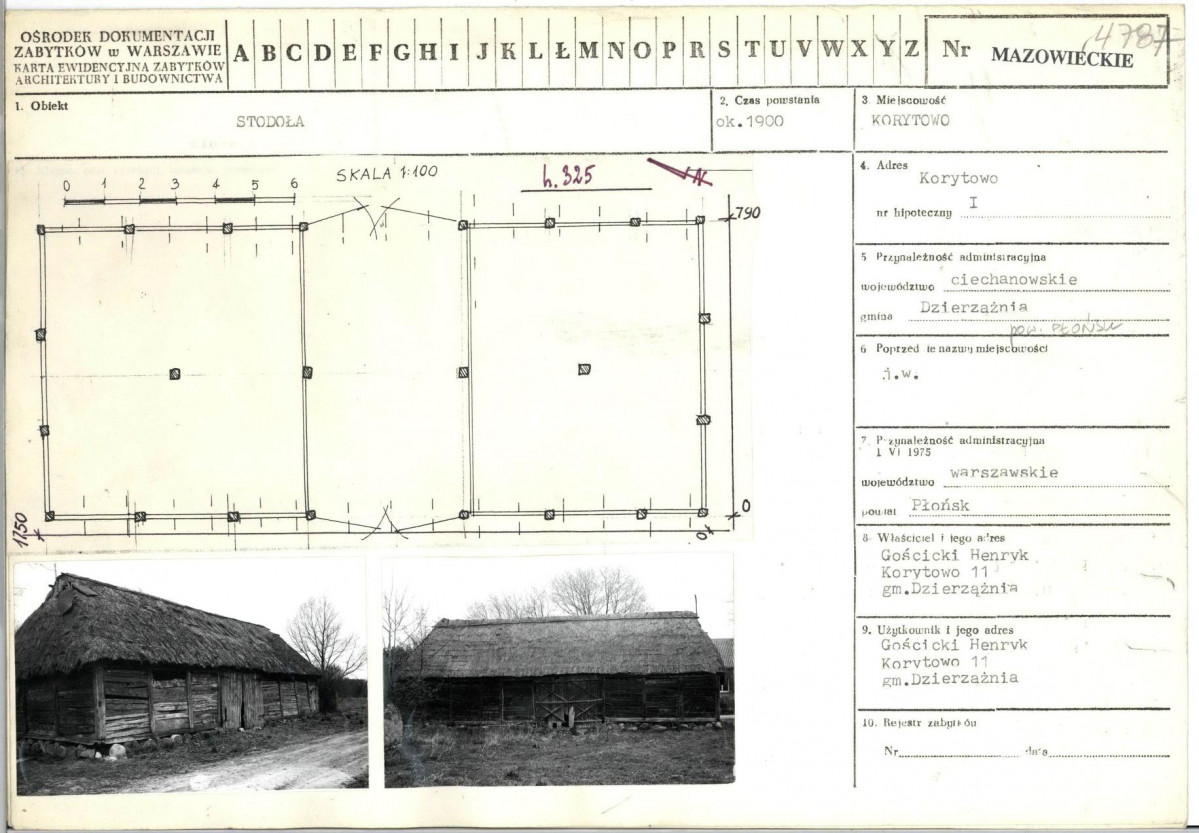 OŚRODEK DOKUMENTACJI
ZABYTKÓW w WARSZAWIE
KARTA EWIDENCYJNA ZABYTKÓW
ARCHITEKTURY I BUDOWNICTWA
A B C D E F G H I J K L Ł M N O P R S T U V W X Y Z
Nr MAZOWIECKIE
4787
1. Obiekt
STODOŁA
2. Czas powstania
ok.1900
3. Miejscowość
KORYTOWO
0 1 2 3 4 5 6
SKALA 1:100
h. 325
N
790
0
1750
0
4. Adres
Korytowo
nr hipoteczny I
5 Przynależność administracyjna
województwo ciechanowskie
gmina Dzierzążnia
pow. PŁOŃSK
6 Poprzed ie nazwy miejscowości
j.w.
7. Przynależność administracyjna
1 VI 1975
województwo warszawskie
powiat Płońsk
8. Właściciel i jego adres
Gościcki Henryk
Korytowo 11
gm.Dzierzążnia
9. Użytkownik i jego adres
Gościcki Henryk
Korytowo 11
gm.Dzierzążnia
10. Rejestr zabytków
Nr data